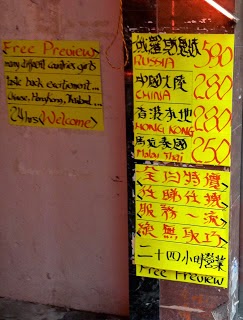 Free Preview
many different countries girls
look back excitement...
Chinese, HongKong, Thailand...
24hrs Welcome
俄羅斯 580
RUSSIA
中國大陸 280
CHINA
香港本地 280
HONG KONG
馬拉泰國 250
Malay Thai
全白特價
任睇任揀
服務一流
絕無取巧
二十四小時營業
Free Preview